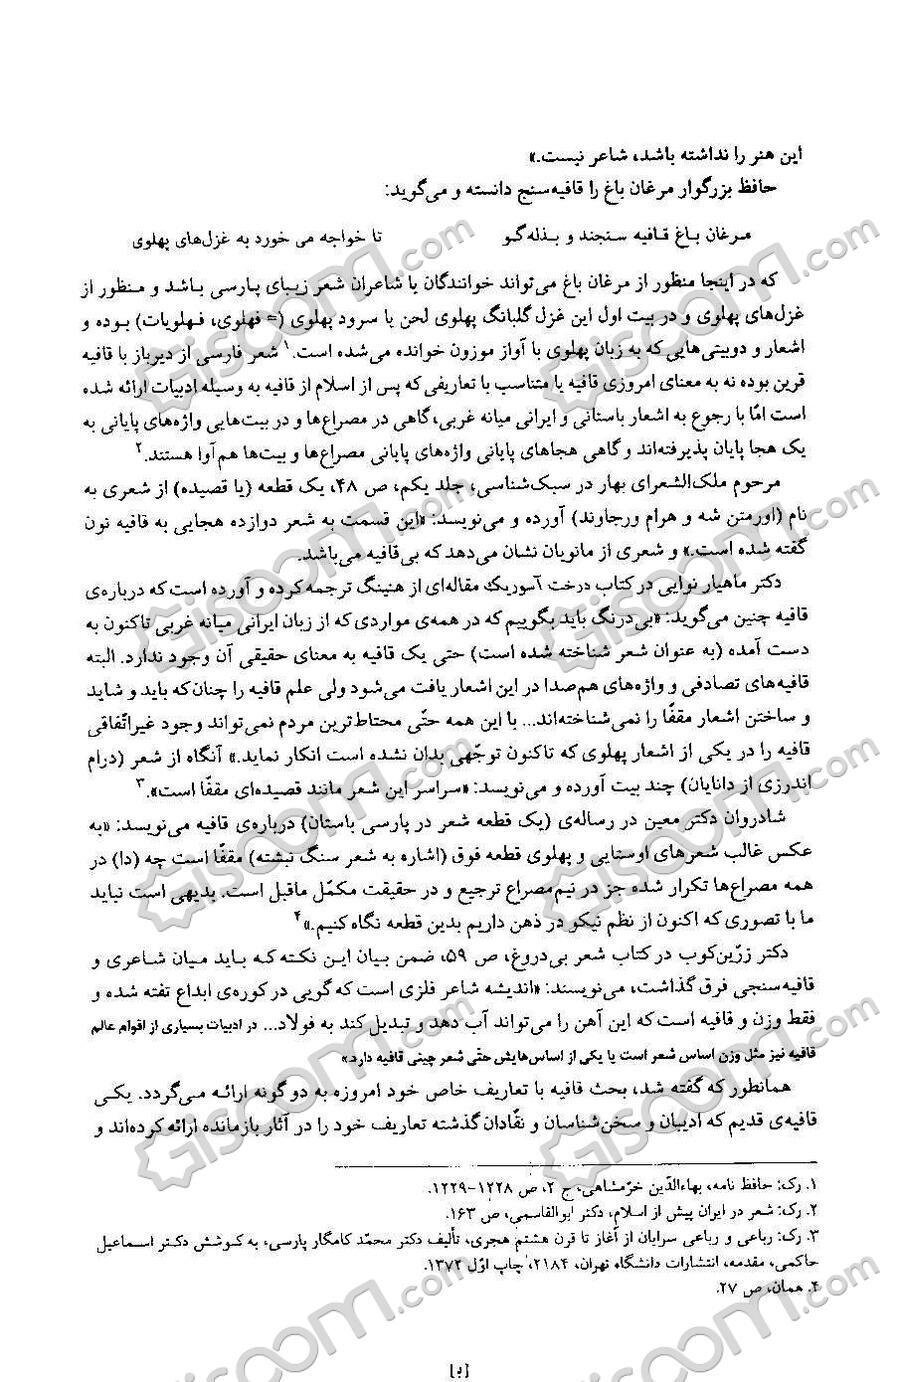 این هنر را نداشته باشد، شاعر نیست.»
حافظ بزرگوار مرغان باغ را قافیه‌سنج دانسته و می‌گوید:
مرغان باغ قافیه سنجند و بذله‌گو تا خواجه می خورد به غزل‌های پهلوی
که در اینجا منظور از مرغان باغ می‌تواند خوانندگان یا شاعران شعر زیبای پارسی باشد و منظور از
غزل‌های پهلوی و در بیت اول این غزل گلبانگ پهلوی لحن یا سرود پهلوی (= فهلوی، فهلویات) بوده و
اشعار و دوبیتی‌هایی که به زبان پهلوی با آواز موزون خوانده می‌شده است.۱ شعر فارسی از دیرباز با قافیه
قرین بوده نه به معنای امروزی قافیه یا متناسب با تعاریفی که پس از اسلام از قافیه به وسیله ادبیات ارائه شده
است امّا با رجوع به اشعار باستانی و ایرانی میانه غربی،گاهی در مصراع‌ها و در بیت‌هایی واژه‌های پایانی به
یک هجا پایان پذیرفته‌اند و گاهی هجاهای پایانی واژه‌های پایانی مصراع‌ها و بیت‌ها هم‌آوا هستند.۲
مرحوم ملک‌الشعرای بهار در سبک‌شناسی، جلد یکم، ص ۴۸، یک قطعه (یا قصیده) از شعری به
نام (اورمتن شه و هرام ورجاوند) آورده و می‌نویسد: «این قسمت به شعر دوازده هجایی به قافیه نون
گفته شده است.» و شعری از مانویان نشان می‌دهد که بی‌قافیه می‌باشد.
دکتر ماهیار نوابی در کتاب درخت آسوریک مقاله‌ای از هنینگ ترجمه کرده و آورده است که درباره‌ی
قافیه چنین می‌گوید: «بی‌درنگ باید بگوییم که در همه‌ی مواردی که از زبان ایرانی میانه غربی تاکنون به
دست آمده (به عنوان شعر شناخته شده است) حتی یک قافیه به معنای حقیقی آن وجود ندارد. البته
قافیه‌های تصادفی و واژه‌های هم‌صدا در این اشعار یافت می‌شود ولی علم قافیه را چنان‌که باید و شاید
و ساختن اشعار مقفّا را نمی‌شناخته‌اند... با این همه حتّی محتاط‌ترین مردم نمی‌تواند وجود غیراتّفاقی
قافیه را در یکی از اشعار پهلوی که تاکنون توجّهی بدان نشده است انکار نماید.» آنگاه از شعر (درام
اندرزی از دانایان) چند بیت آورده و می‌نویسد: «سراسر این شعر مانند قصیده‌ای مقفّا است».۳
شادروان دکتر معین در رساله‌ی (یک قطعه شعر در پارسی باستان) درباره‌ی قافیه می‌نویسد: «به
عکس غالب شعرهای اوستایی و پهلوی قطعه فوق (اشاره به شعر سنگ نبشته) مقفّا است چه (دا) در
همه مصراع‌ها تکرار شده جز در نیم‌مصراع ترجیع و در حقیقت مکمّل ماقبل است. بدیهی است نباید
ما با تصوری که اکنون از نظم نیکو در ذهن داریم بدین قطعه نگاه کنیم.»۴
دکتر زرّین‌کوب در کتاب شعر بی‌دروغ، ص ۵۹، ضمن بیان این نکته که باید میان شاعری و
قافیه‌سنجی فرق گذاشت، می‌نویسند: «اندیشه شاعر فلزی است که گویی در کوره‌ی ابداع تفته شده و
فقط وزن و قافیه است که این آهن را می‌تواند آب دهد و تبدیل کند به فولاد... در ادبیات بسیاری از اقوام عالم
قافیه نیز مثل وزن اساس شعر است یا یکی از اساس‌هایش حتّی شعر چینی قافیه دارد»
همانطور که گفته شد، بحث قافیه با تعاریف خاص خود امروزه به دو گونه ارائه می‌گردد. یکی
قافیه‌ی قدیم که ادیبان و سخن‌شناسان و نقّادان گذشته تعاریف خود را در آثار بازمانده ارائه کرده‌اند و
۱. رک: حافظ نامه، بهاءالدّین خرّمشاهی، ج ۲، ص ۱۲۲۸-۱۲۲۹.
۲. رک: شعر در ایران پیش از اسلام، دکتر ابوالقاسمی، ص ۱۶۳.
۳. رک: رباعی و رباعی سرایان از آغاز تا قرن هشتم هجری، تألیف دکتر محمّد کامگار پارسی، به کوشش دکتر اسماعیل
حاکمی، مقدمه، انتشارات دانشگاه تهران، ۲۱۸۴، چاپ اوّل ۱۳۷۲.
۴. همان، ص ۲۷.
Gisoom.com